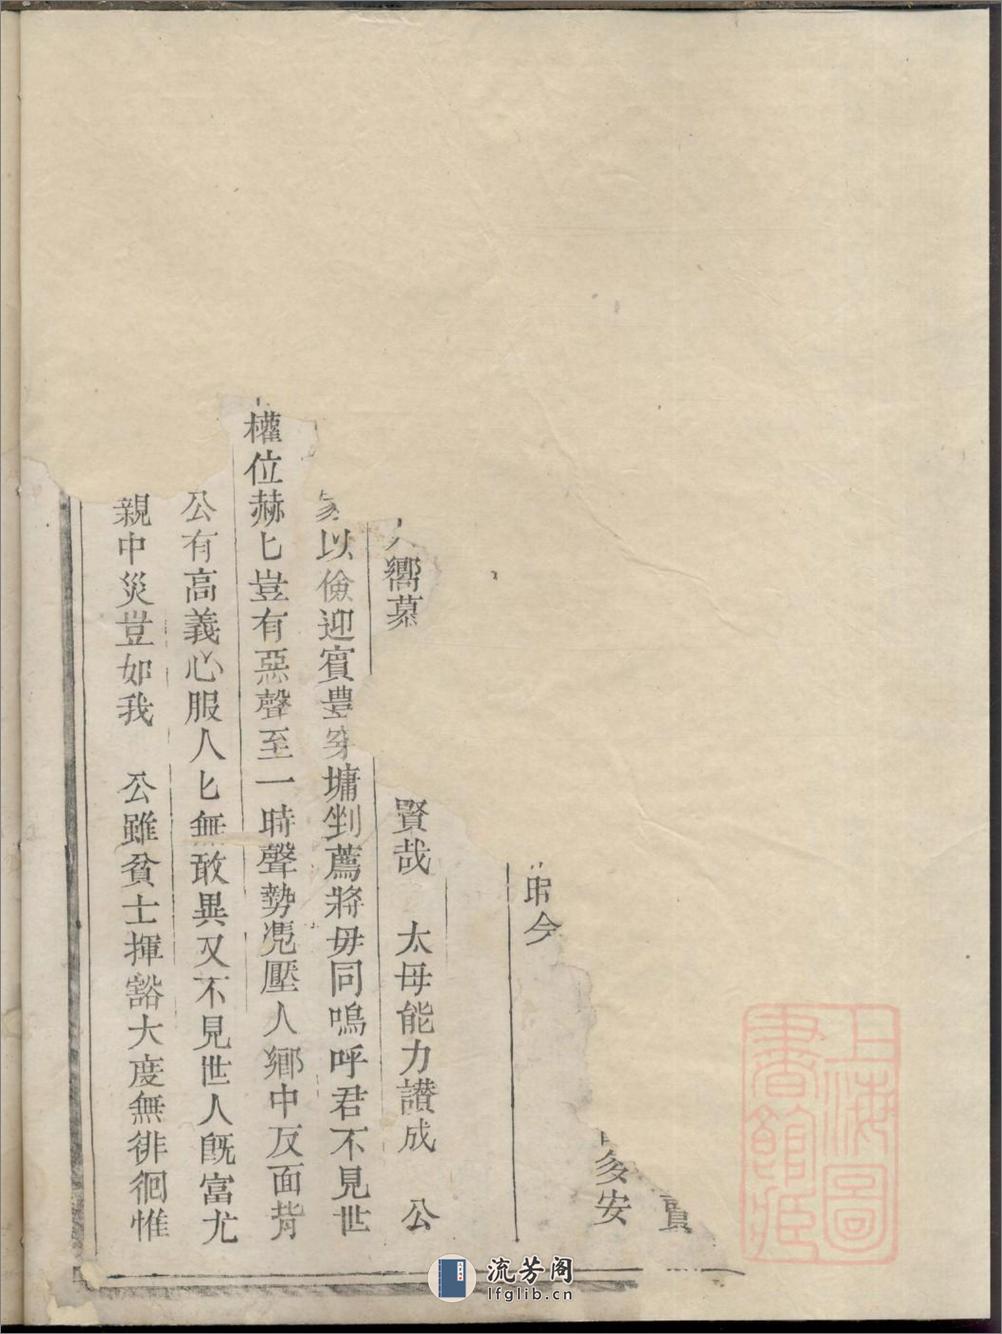 多安
今
嚮慕
賢哉 太母能力讚成 公
以儉迎賓豊 墉剉薦將毋同嗚呼君不見世
權位赫匕豈有惡聲至一時聲勢凴壓人鄉中反面背
公有高義心服人匕無敢異又不見世人旣富尤
親中災豈如我 公雖貧士揮豁大度無徘徊惟
上海圖書館藏
流芳阁
lfglib.cn